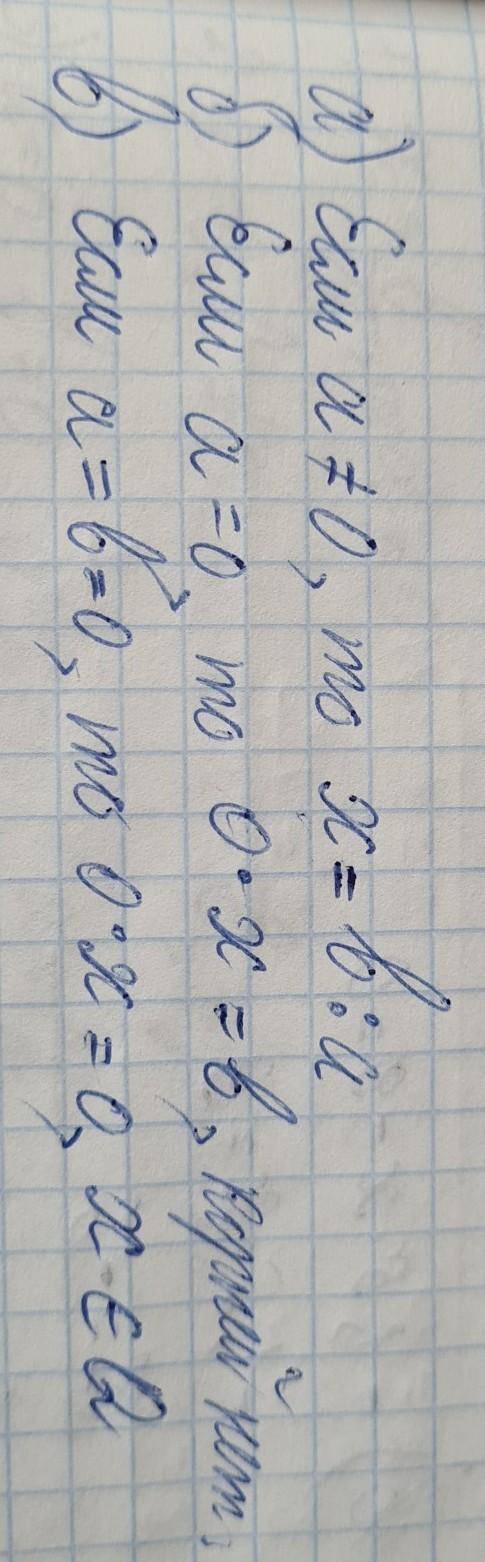 а) Если a ≠ 0, то x = b : a
б) Если a = 0, то 0 · x = b, корней нет,
в) Если a = b = 0, то 0 · x = 0, x ∈ Q